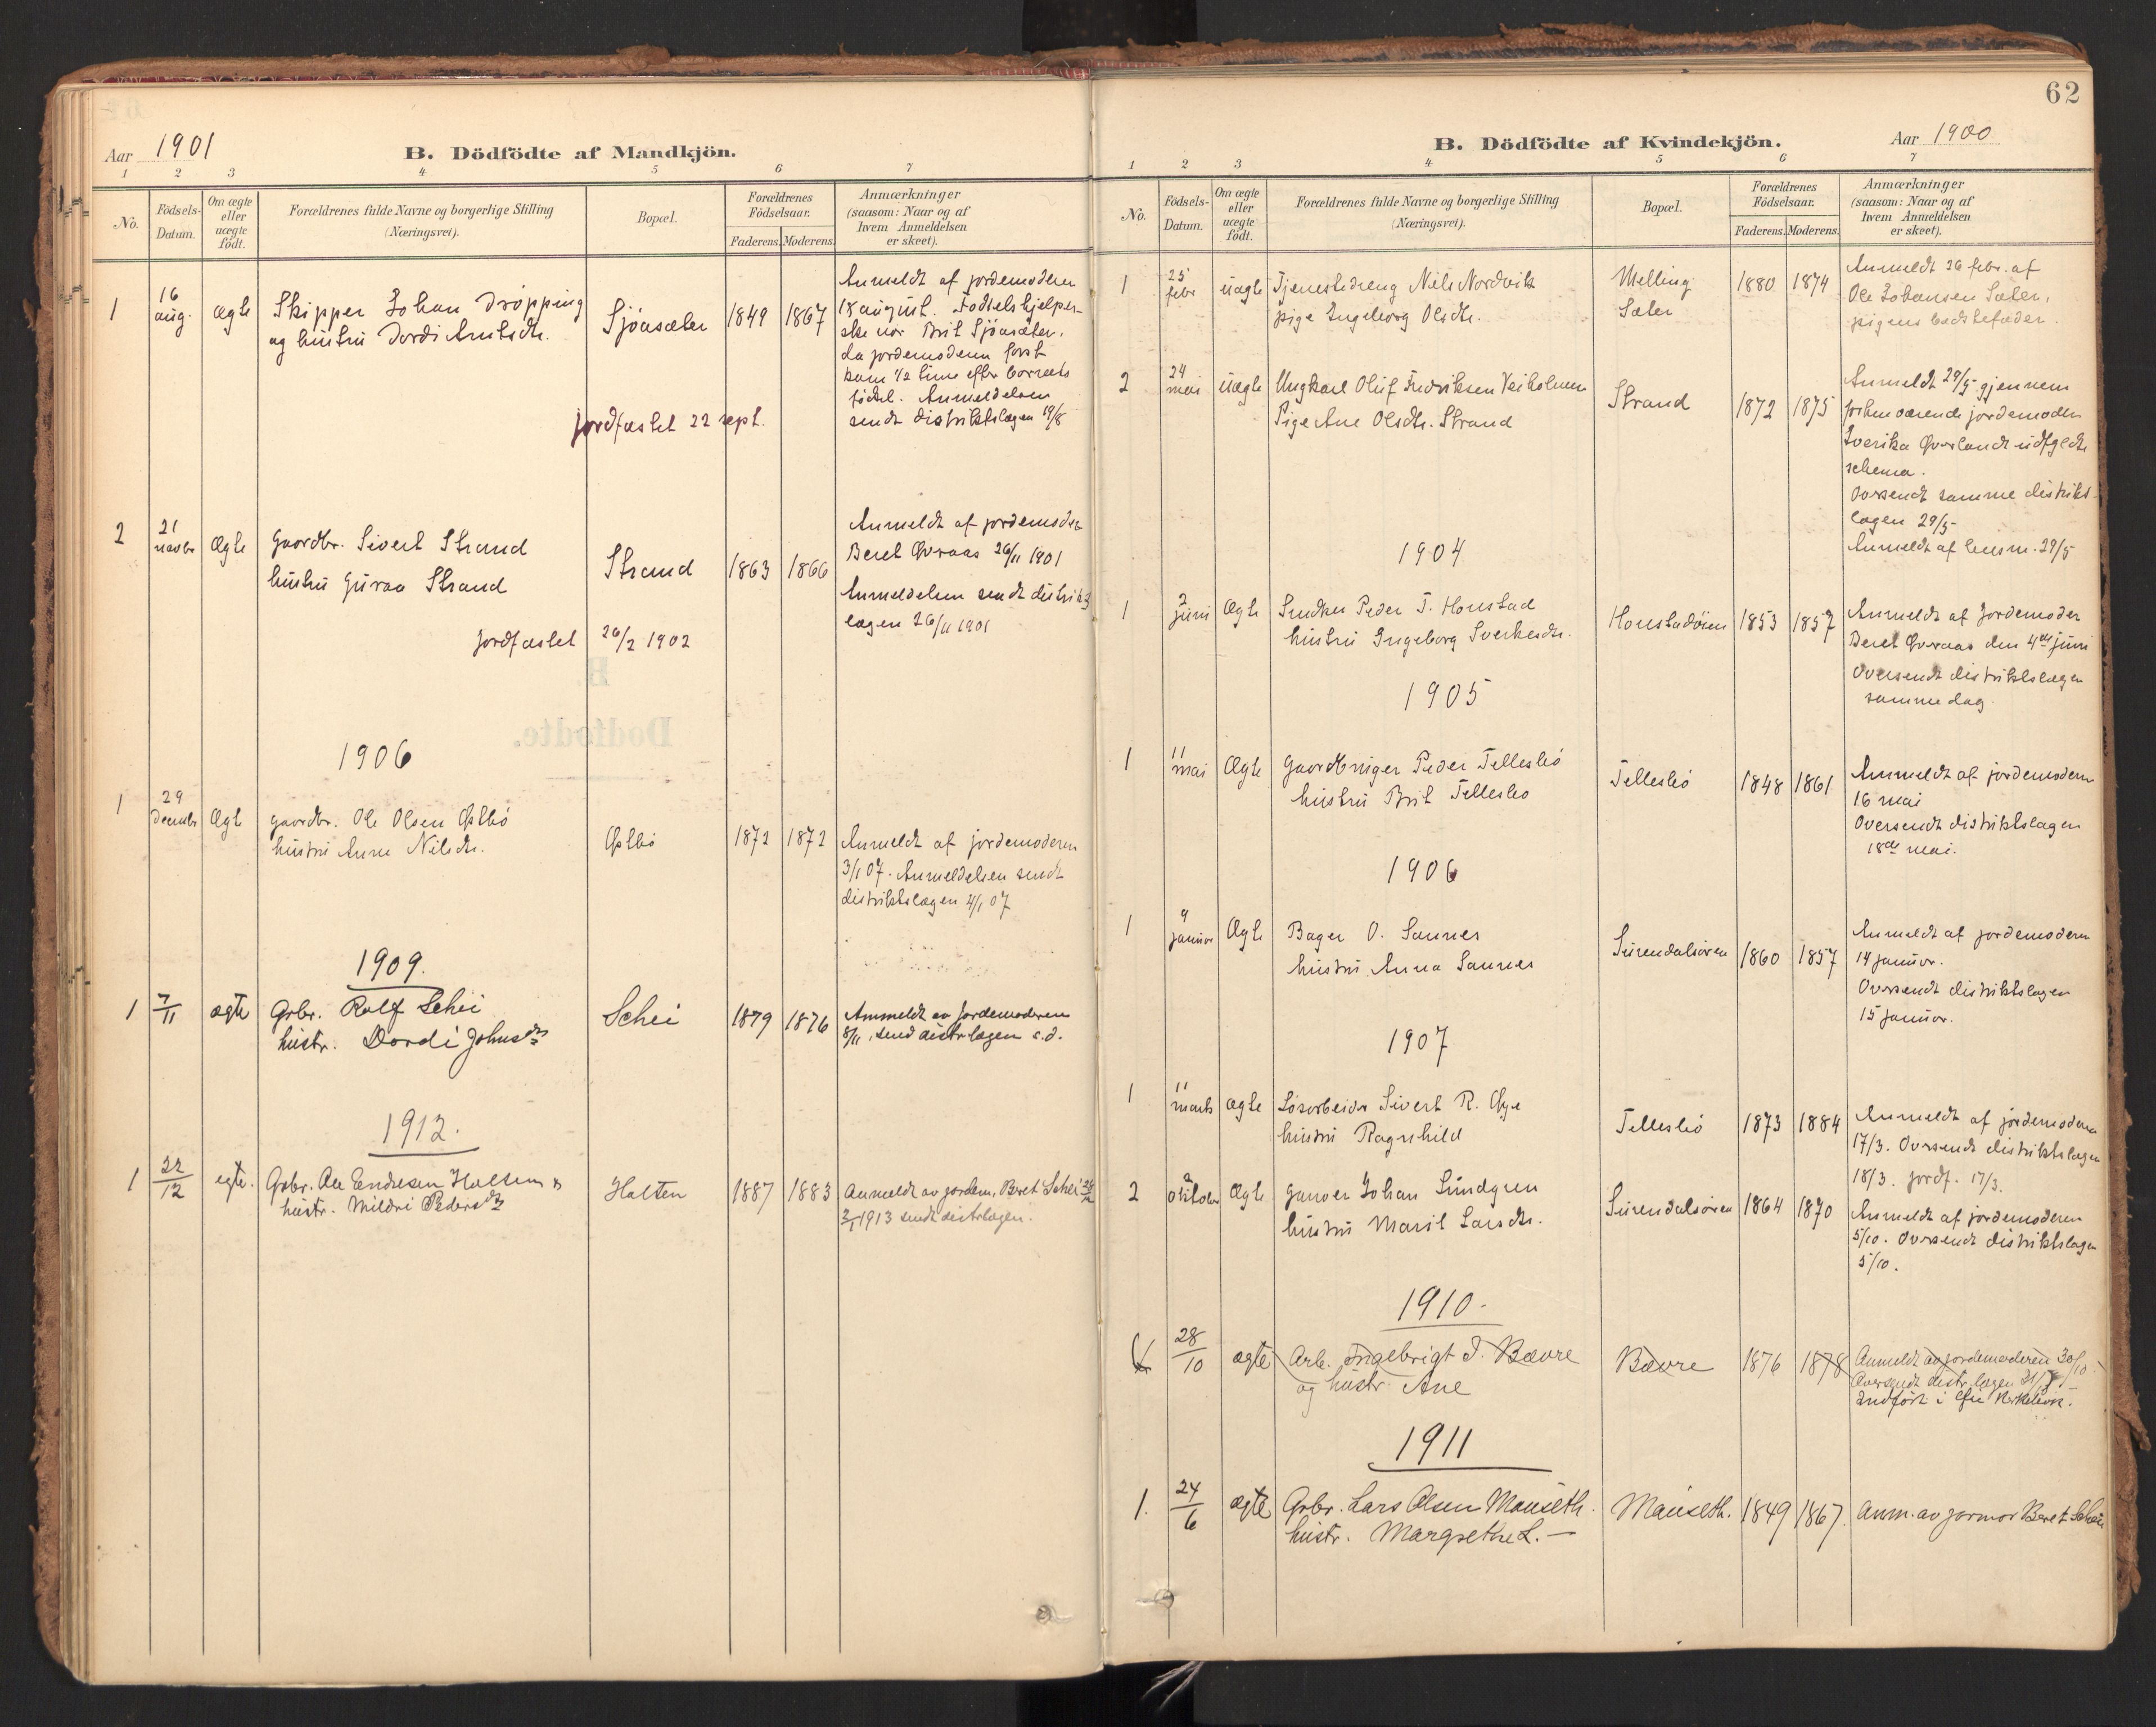 Aar 1901
B. Dödfödte af Mandkjön.
1 2 3 4 5 6 7
No.
Födsels-
Datum.
Om ægte
eller
uægte
født.
Forældrenes fulde Navne og borgerlige Stilling
(Næringsvei).
Bopæl.
Forældrenes
Födselsaar.
Faderens. Moderens.
Anmærkninger
(saasom: Naar og af
hvem Anmeldelsen
er skeet).
1
16
aug.
ægte
Skipper Johan Dröpping
og hustru Dordi Arntsdtr.
Sjöasæter
1849 1867
Anmeldt af jordemoderen
18 august. Fødselshjelper-
ske var Brit Sjöasæter,
da jordemoderen først
kom 1/2 time efter barnets
födsel. Anmeldelsen
sendt distriktslægen 19/8
jordfæstet 22 sept.
2
21
novbr
Ægte
Gaardbr. Sivert Strand
hustru Guraa Strand
Strand
1863 1866
Anmeldt af jordemoder
Beret Qvraas 26/11 1901
Anmeldelsen sendt distrikts
lægen 26/11 1901
Jordfæstet 26/2 1902
B.
Dødfødte.
1906
1
29
Decembr
Ægte
gaardbr. Ole Olsen Østbö
hustru Anne Nilsdtr.
Østbö
1872 1872
Anmeldt af jordemoderen
3/1 07. Anmeldelsen sendt
distriktslægen 4/1 07
1909.
1 7/11 ægte
Grbr. Rolf Schei
hustr. Dordi Johnsdtr
Schei
1879 1876
Anmeldt av jordemoderen
8/11, send distr.lægen s.d.
1912.
1 22/12 egte.
Grbr. Ole Endresen Holten og
hustr. Mildri Pedersdtr
Holten
1887 1883
Anmeldt av jordem. Beret Schei 28/12
2/1 1913 sendt distrlægen.
62
B. Dödfödte af Kvindekjön.
Aar 1900
1 2 3 4 5 6 7
No.
Födsels-
Datum.
Om ægte
eller
uægte
födt.
Forældrenes fulde Navne og borgerlige Stilling
(Næringsvei).
Bopæl.
Forældrenes
Födselsaar.
Faderens. Moderens.
Anmærkninger
(saasom: Naar og af
hvem Anmeldelsen
er skeet).
1
25
febr
uægte
Tjenestedreng Nils Nordvik
pige Ingeborg Olsdtr.
Melling
Sæter
1880 1874
Anmeldt 26 febr. af
Ole Johansen Sæter,
pigens bedstefader.
2
24
mai
uægte
Ungkarl Oluf Fredriksen Veiholmen
Pige Ane Olsdtr. Strand
Strand
1872 1875
Anmeldt 29/5 gjennem
jordemoder
Sverika Qverlandt udfyldt
schema.
Oversendt samme distrikts-
lægen 29/5
Anmeldt af lensm. 29/5
1904
1
2
juni
Ægte
Snedker Peder T. Honstad
hustru Ingeborg Sverkesdtr.
Honstadöien
1853 1857
Anmeldt af Jordemoder
Beret Qvraas den 4de juni
Oversendt distriktslægen
samme dag.
1905
1
11
mai
Ægte
Gaardbruger Peder Tellesbö
hustru Brit Tellesbö
Tellesbö
1848 1861
Anmeldt af jordemoderen
16 mai
Oversendt distriktslægen
18de mai.
1906
1
9
januar
Ægte
Bager O. Sannes
hustru Anna Sannes
Surendalsören
1860 1857
Anmeldt af jordemoderen
14 januar.
Oversendt distriktslægen
15 januar.
1907
1
11
marts
ægte
Løsarbeider Sivert R. Øye
hustru Ragnhild
Tellesbö
1873 1884
Anmeldt af jordemoderen
17/3. Oversendt distriktslægen
18/3. Jordf. 17/3.
2
2
oktober
Ægte
garver Johan Sundgren
hustru Marit Larsdtr.
Surendalsören
1864 1870
Anmeldt af jordemoderen
5/10. Oversendt distriktslægen
5/10.
1910.
28/10 ægte
Arb. Ingebrigt J. Bævre
og hustr. Ane
Bævre
1876 1878
Anmeldt av jordemoderen 30/10
Oversendt distr.lægen 31/10
Indført i Øie Kirkebok.
1911
1. 24/6 ægte
Grbr. Lars Olsen Mauseth.
hustr. Margrethe L. —
Mauseth.
1849 1867.
Anm. av jormor Beret Schei